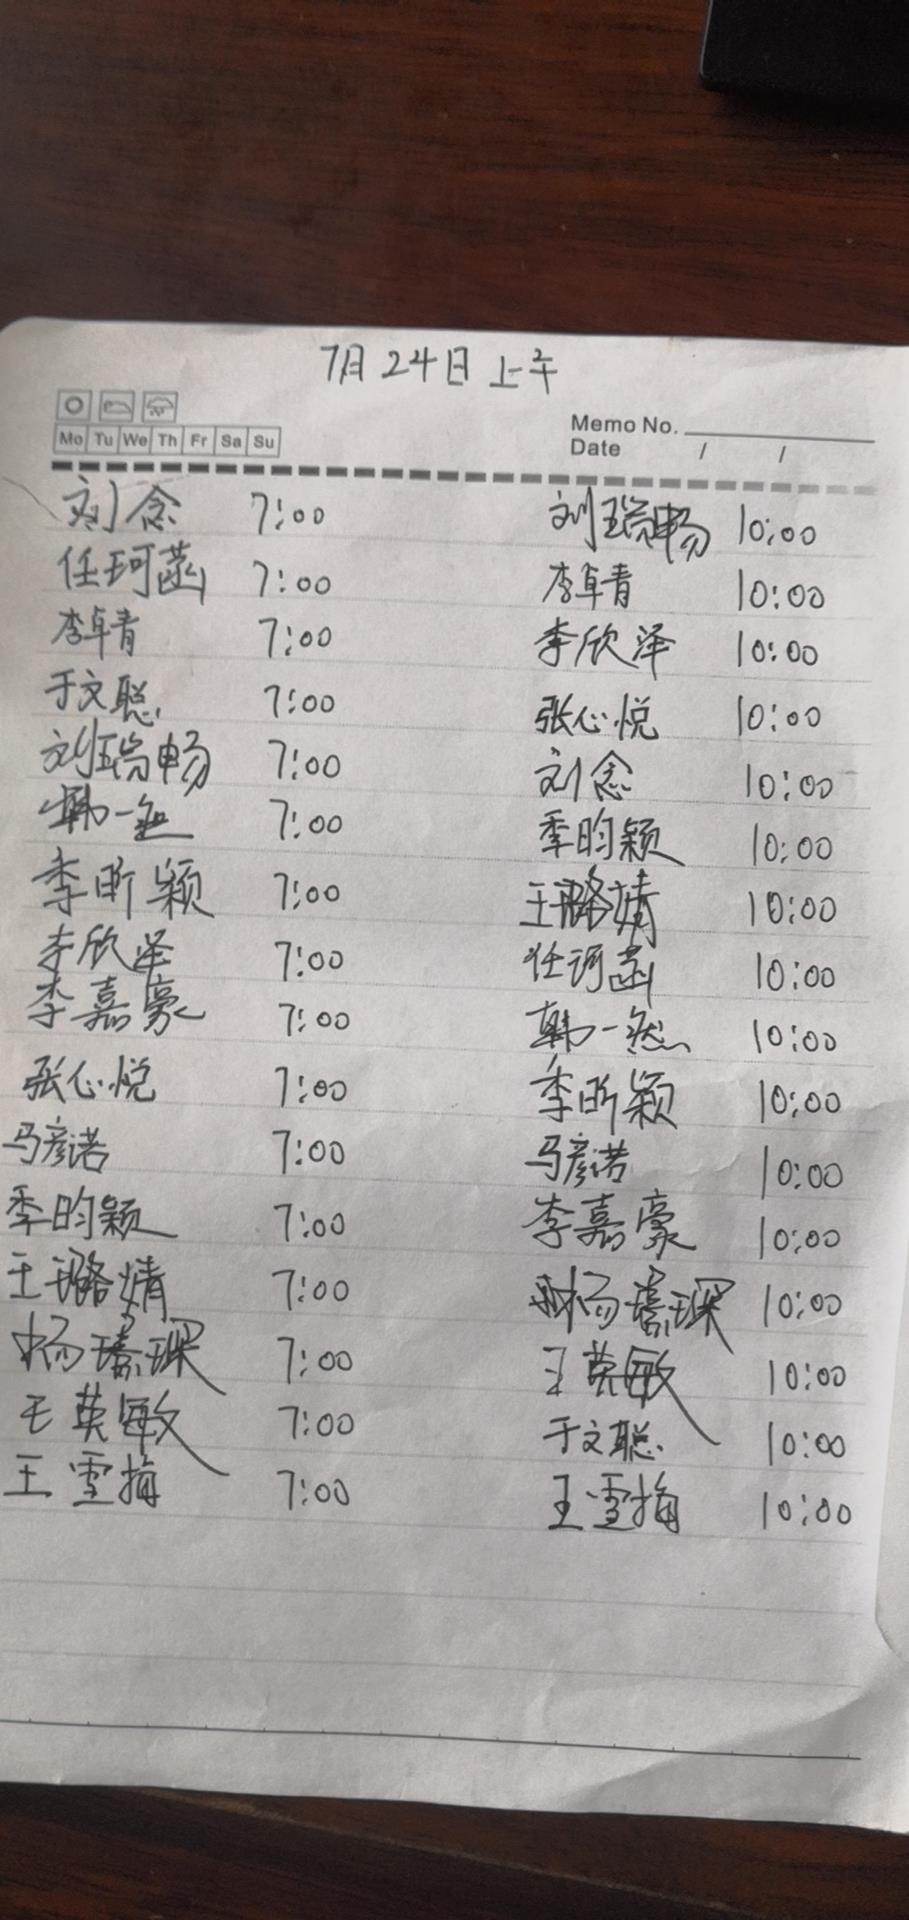 7月24日 上午
Mo Tu We Th Fr Sa Su
Memo No.
Date / /
刘念 7:00 刘瑞畅 10:00
任珂菡 7:00 李卓青 10:00
李卓青 7:00 李欣泽 10:00
于文聪 7:00 张心悦 10:00
刘瑞畅 7:00 刘念 10:00
韩一然 7:00 季昀颖 10:00
季昕颖 7:00 王璐婧 10:00
李欣泽 7:00 任珂菡 10:00
李嘉豪 7:00 韩一然 10:00
张心悦 7:00 季昕颖 10:00
马彦诺 7:00 马彦诺 10:00
季昀颖 7:00 李嘉豪 10:00
王璐婧 7:00 杨瑧琛 10:00
杨瑧琛 7:00 王英敏 10:00
王英敏 7:00 于文聪 10:00
王雪梅 7:00 王雪梅 10:00